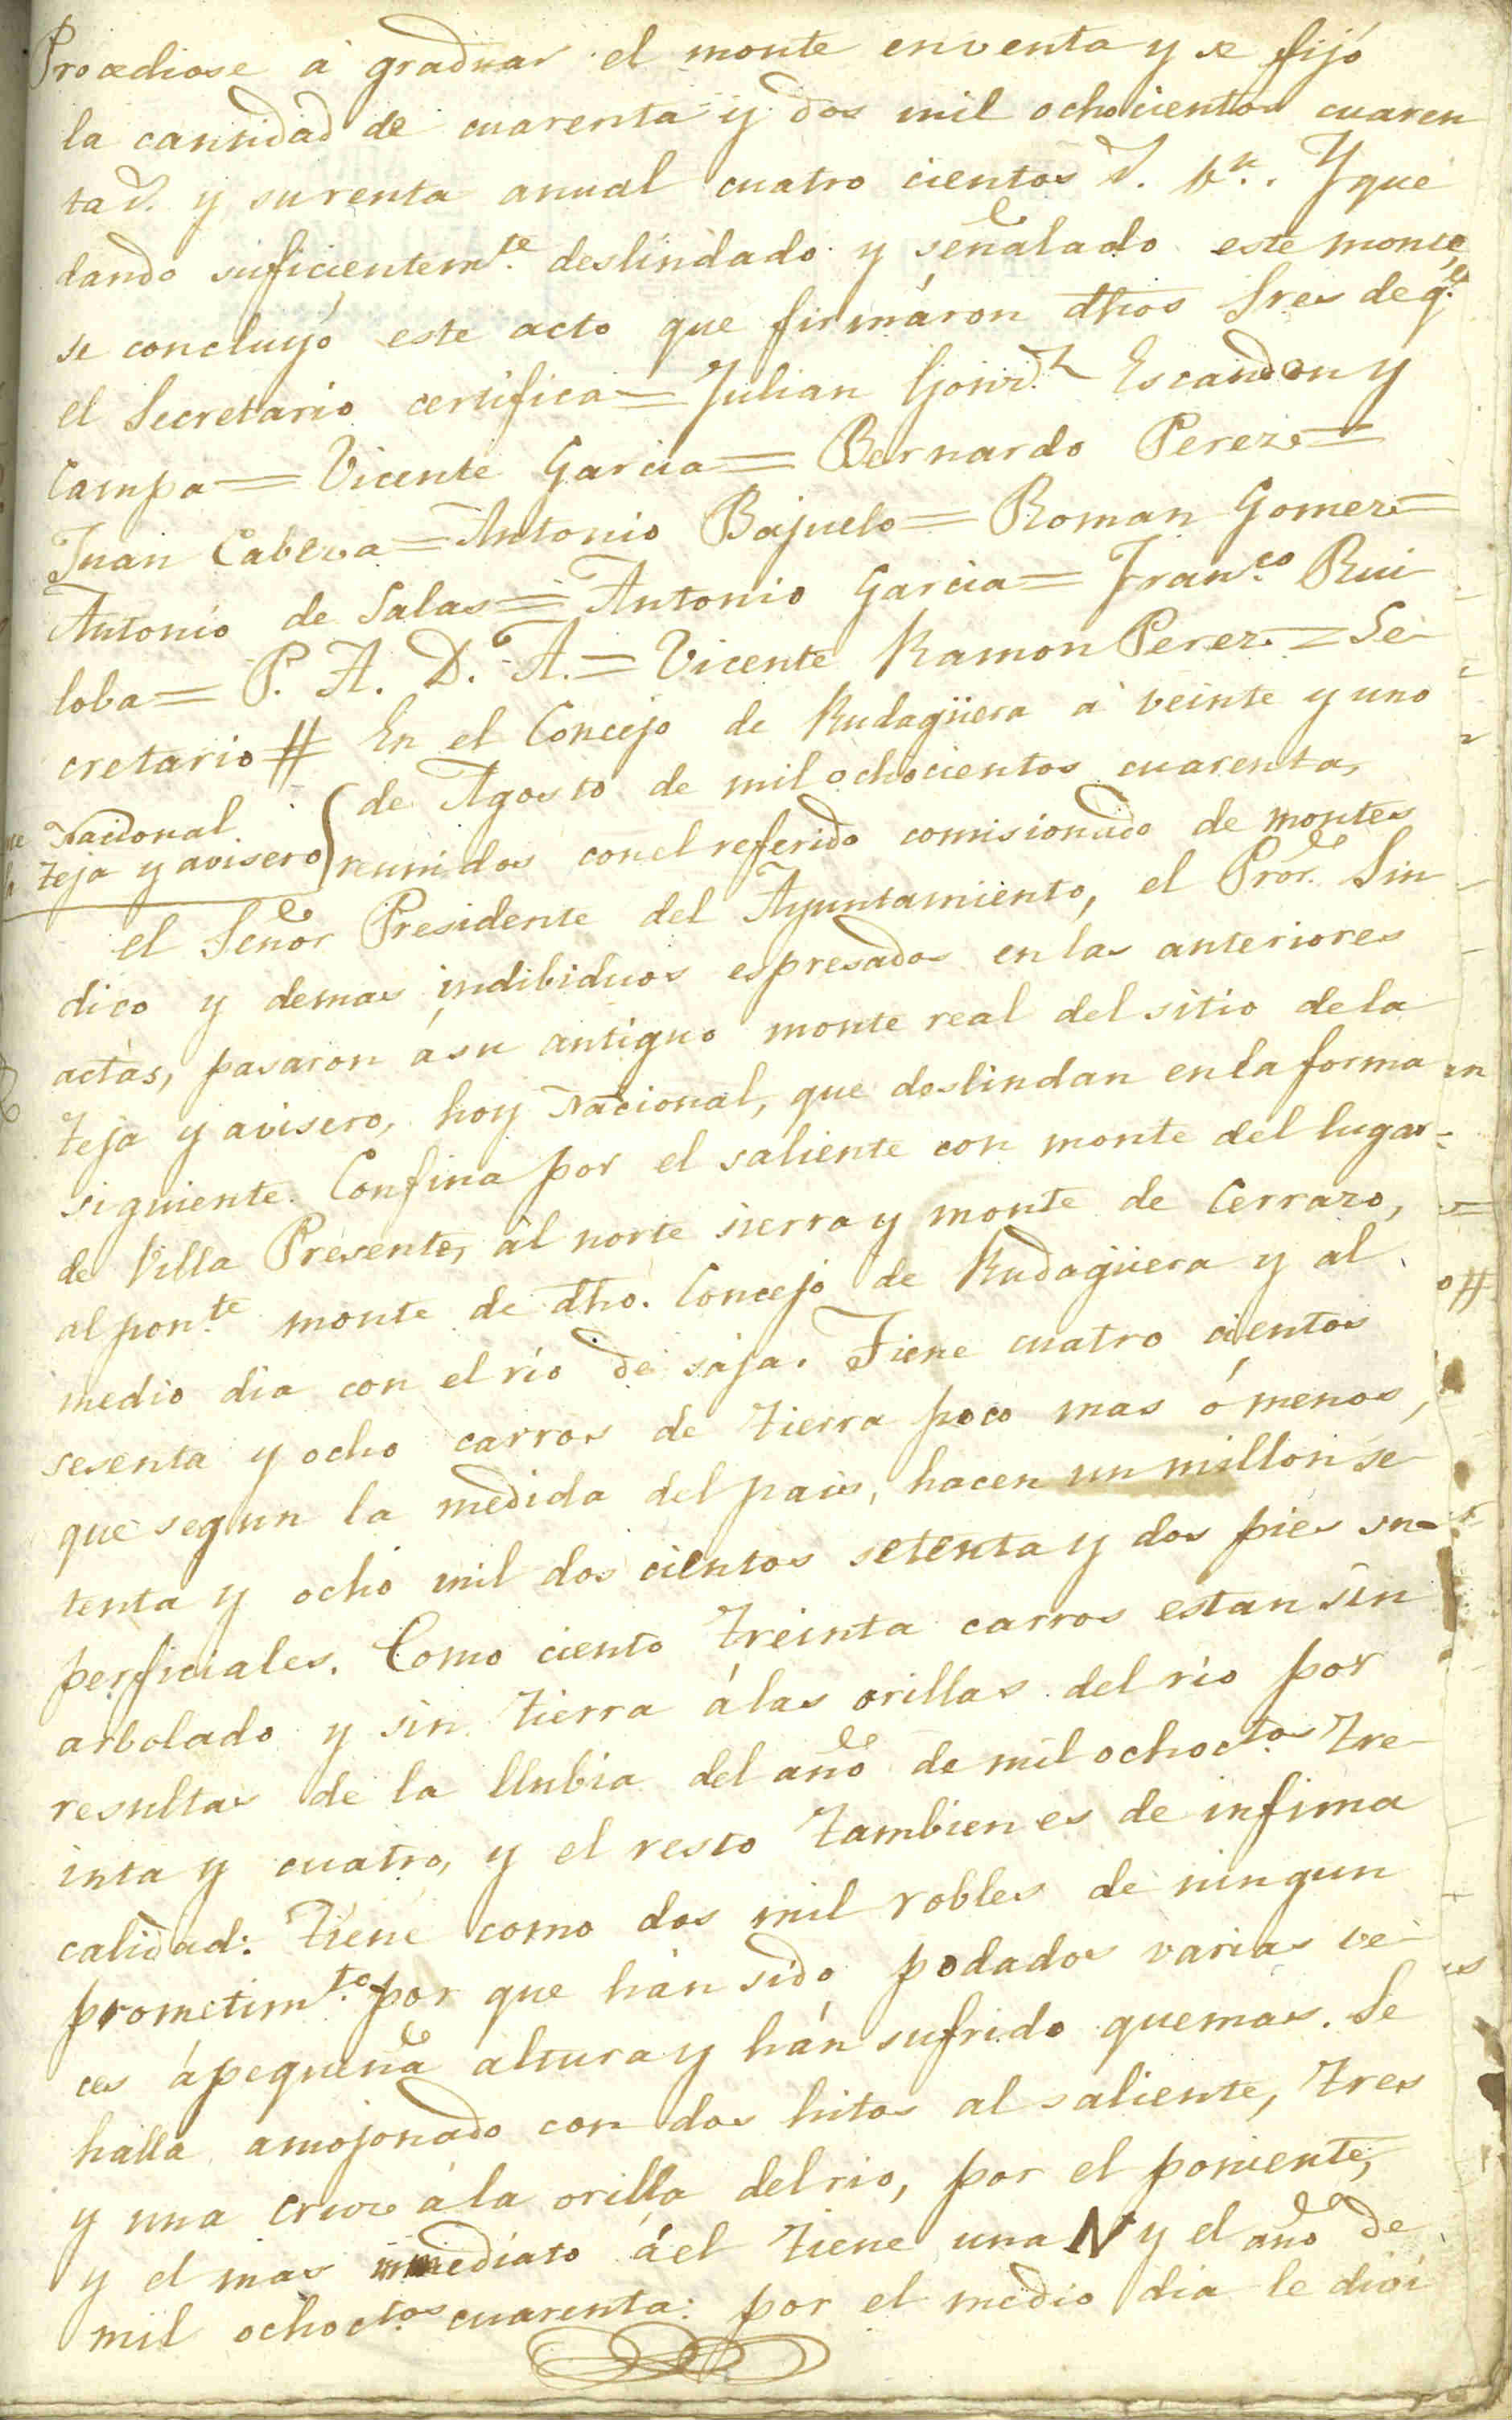 Procediose á graduar el monte en venta y se fijó
la cantidad de cuarenta y dos mil ochocientos cuaren
ta r.s y su renta anual cuatro cientos r.s v.n. Y que
dando suficientem.te deslindado y señalado este monte,
se concluyó este acto que firmáron dhos Sres de q.e
el Secretario certifica = Julian Gonz.z Escandon y
Campa = Vicente Garcia = Bernardo Perez =
Juan Cabeza = Antonio Bajuelo = Roman Gomez =
Antonio de Salas = Antonio Garcia = Fran.co Rui
loba = P. A. D. A. = Vicente Ramon Perez = Se
cretario # En el Concejo de Rudagüera á veinte y uno
de Agosto de mil ochocientos cuarenta,
Nacional.
Teja y avisero
reunidos con el referido comisionado de montes
el Señor Presidente del Ayuntamiento, el Prór. Sin
dico y demas indibiduos espresados en las anteriores
actas, pasaron á su antiguo monte real del sitio de la
Teja y avisero, hoy Nacional, que deslindan en la forma
siguiente. Confina por el saliente con monte del lugar
de Villa Presente, al norte sierra y monte de Cerrazo,
al pon.te monte de dho. Concejo de Rudagüera y al
medio dia con el rio de saja. Tiene cuatro cientos
sesenta y ocho carros de tierra poco mas ó menos,
que segun la medida del pais, hacen un millon se
tenta y ocho mil dos cientos setenta y dos pies su
perficiales. Como ciento treinta carros estan sin
arbolado y sin tierra á las orillas del rio por
resultas de la llubia del año de mil ochoc.tos tre
inta y cuatro, y el resto tambien es de infima
calidad: Tiene como dos mil robles de ningun
prometim.to por que hán sido podados varias ve
ces á pequeña altura y hán sufrido quemas. Se
halla amojonado con dos hitos al saliente, tres
y una cruz á la orilla del rio, por el poniente,
y el mas inmediato á el tiene una N y el año de
mil ochoc.tos cuarenta: por el medio dia le divi